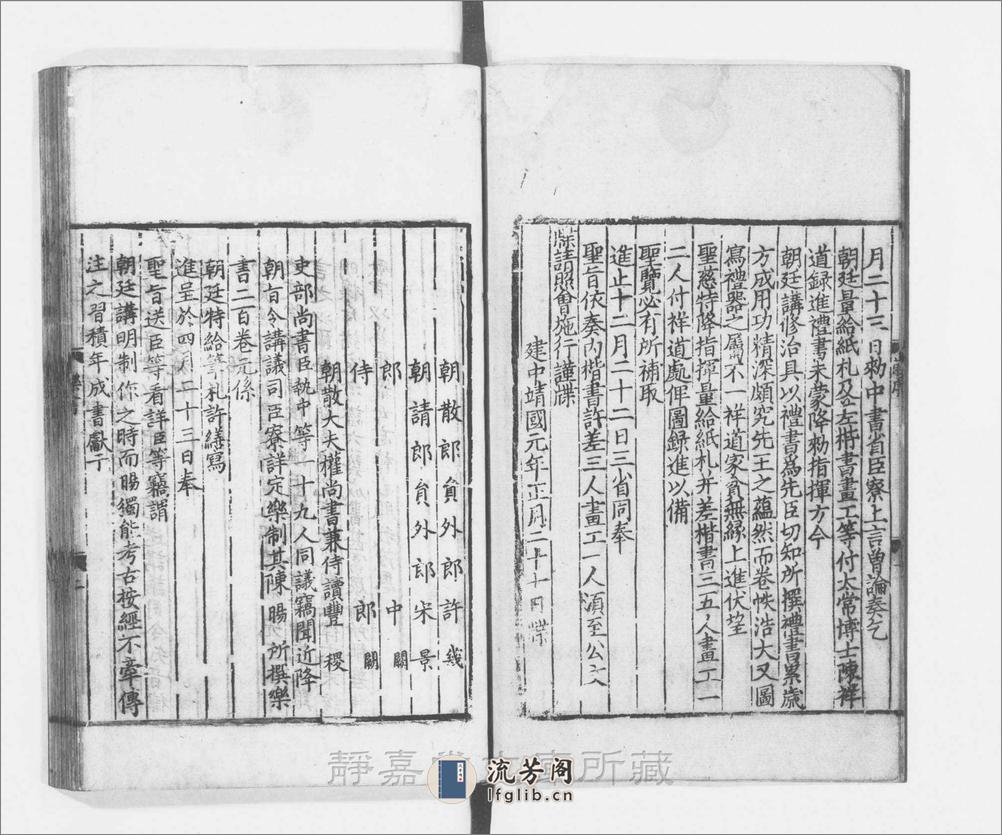 月二十三日敕中書省臣寮上言曾論奏乞
朝廷量給紙札及差楷書畫工等付太常博士陳祥
道録進禮書未蒙降敕指揮方今
朝廷講修治具以禮書爲先臣切知所撰禮書累歳
方成用功精深頗究先王之藴然而卷帙浩大又圖
寫禮器之屬不一祥道家貧無緣上進伏望
聖慈特降指揮量給紙札并差楷書三五人畫工一
二人付祥道處俾圖録進以備
聖覽必有所補取
進止十二月二十二日三省同奉
聖旨依奏内楷書許差三人畫工一人須至公文
牒請照會施行謹牒
建中靖國元年正月二十日牒
朝散郎貟外郎許幾
朝請郎貟外郎宋景
郎中闕
侍郎闕
朝散大夫權尚書兼侍讀豐稷
吏部尚書臣執中等一十九人同議竊聞近降
朝旨令講議司臣寮詳定樂制其陳暘所撰樂
書二百卷元係
朝廷特給筆札許繕寫
進呈於四月二十三日奉
聖旨送臣等看詳臣等竊謂
朝廷講明制作之時而暘獨能考古按經不牽傳
注之習積年成書獻于
靜嘉堂文庫所藏
流芳阁
lfglib.cn